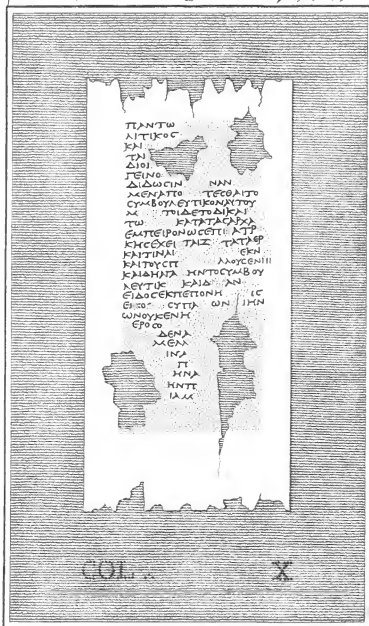 ΠΑΝΤΩ
ΛΙΤΙΚΟϹ
ΚΑΙ
ΤΑΙ
ΔΙΟΙ
ΠΕΙΝΟ
ΔΙΔΩϹΙΝ ΝΑΝ
ΜΕΝΑΠΟ ΤΕϹΘΑΙΤΟ
ϹΥΜΒΟΥΛΕΥΤΙΚΟΝΑΥΤΟΥ
Μ ΤΟΙΔΕΤΟΔΙΚΑΙ
ΤΩ ΚΑΤΑΤΑϹΑΡΧΑ
ΕΜΠΕΙΡΟΝΩϹΕΠΙ ΑΤΡ
ΚΗϹΕΧΕΙ ΤΑΙΣ ΤΑΤΑΕΡ
ΚΑΙΤΙΝΑΙ ΕΚΝ
ΚΑΙΤΟΥϹΠ ΛΛΟΥϹΕΝΙΙΙ
ΚΑΙΔΗΛΠΑ ΗΝΤΟϹΥΜΒΟΥ
ΛΕΥΤΙΚ ΚΑΙΔ ΑΝ
ΕΙΔΟϹΕΚΠΕΠΟΝΗ ΙϹ
ΕΙΚΟ ϹΥΠΑ ΩΝ ΙΗΝ
ΩΝΟΥΚΕΝΗ
ΕΡΟϹΟ
ΔΕΝΑ
ΜΕΜ
ΙΝΑ
Π
ΗΝΑ
ΗΝΠ
ΙΑΜ
COL. X